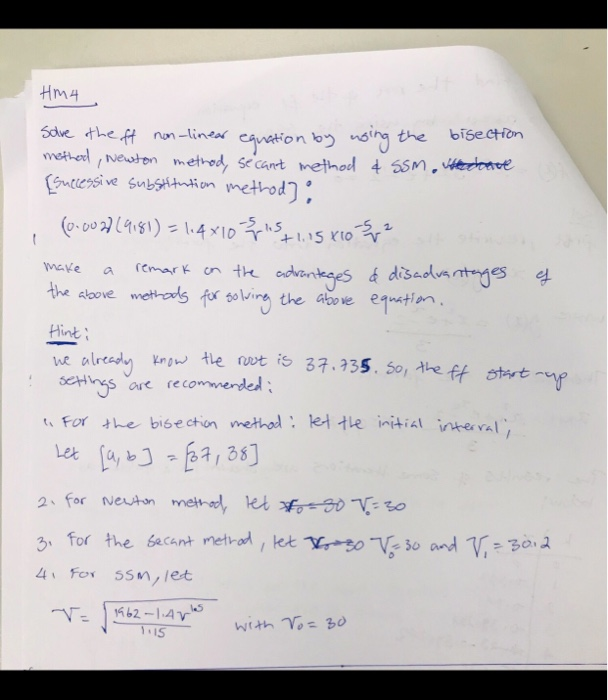 HM4
Solve the ff non-linear equation by using the bisection
method, Newton method, Secant method & SSM.
[Successive Substitution method]:
(0.002)(9.81) = 1.4×10⁻⁵ v^1.5 + 1.15 ×10⁻⁵ v²
make a remark on the advantages & disadvantages of
the above methods for solving the above equation.
Hint:
we already know the root is 37.735. So, the ff start-up
settings are recommended:
1. For the bisection method: let the initial interval,
Let [a,b] = [37, 38]
2. For Newton method, let V₀=30
3. For the Secant method, let V₀=30 and V₁=30.2
4. For SSM, let
V = √((1962 - 1.4 v^1.5)/1.15) with V₀ = 30